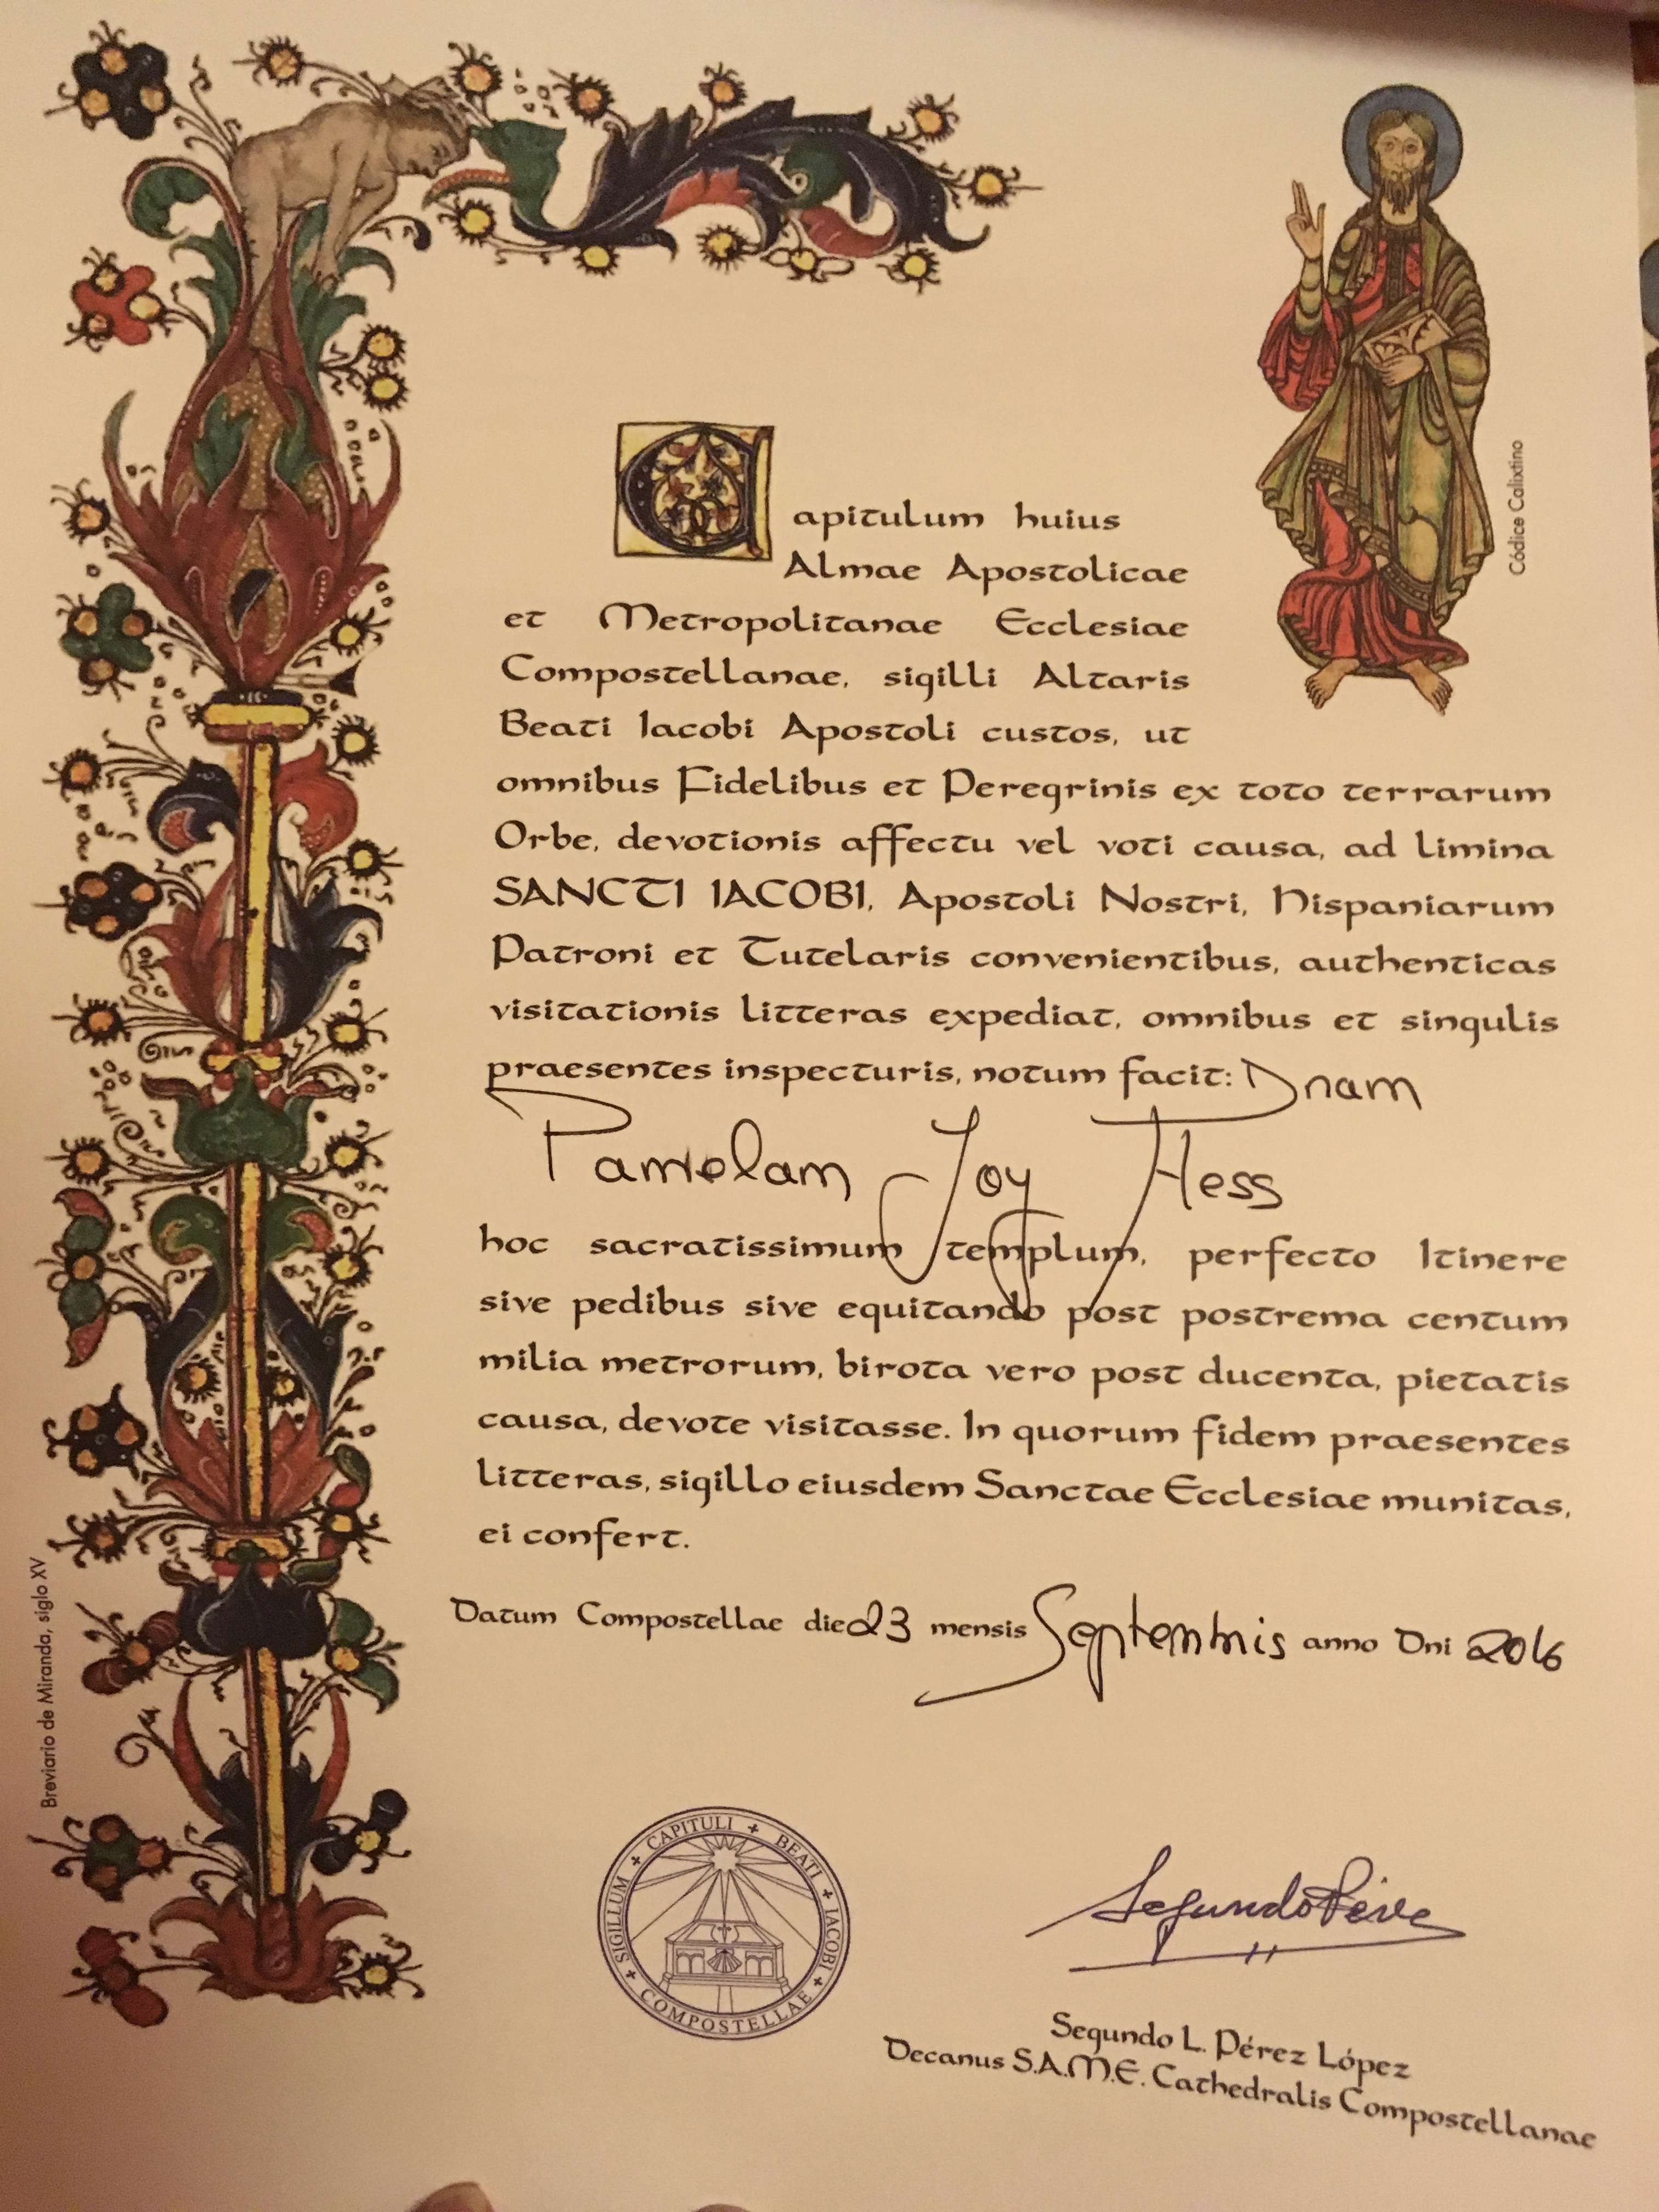 Códice Calixtino
Capitulum huius
Almae Apostolicae
et Metropolitanae Ecclesiae
Compostellanae, sigilli Altaris
Beati Iacobi Apostoli custos, ut
omnibus Fidelibus et Peregrinis ex toto terrarum
Orbe, devotionis affectu vel voti causa, ad limina
SANCTI IACOBI, Apostoli Nostri, Hispaniarum
Patroni et Tutelaris convenientibus, authenticas
visitationis litteras expediat, omnibus et singulis
praesentes inspecturis, notum facit: Dnam
Pamelam Joy Hess
hoc sacratissimum templum, perfecto Itinere
sive pedibus sive equitando post postrema centum
milia metrorum, birota vero post ducenta, pietatis
causa, devote visitasse. In quorum fidem praesentes
litteras, sigillo eiusdem Sanctae Ecclesiae munitas,
ei confert.
Datum Compostellae die 23 mensis Septembris anno Dni 2016
Breviario de Miranda, siglo XV
SIGILLUM + CAPITULI + BEATI + IACOBI + COMPOSTELLAE +
Segundo Pérez
Segundo L. Pérez López
Decanus S.A.M.E. Cathedralis Compostellanae